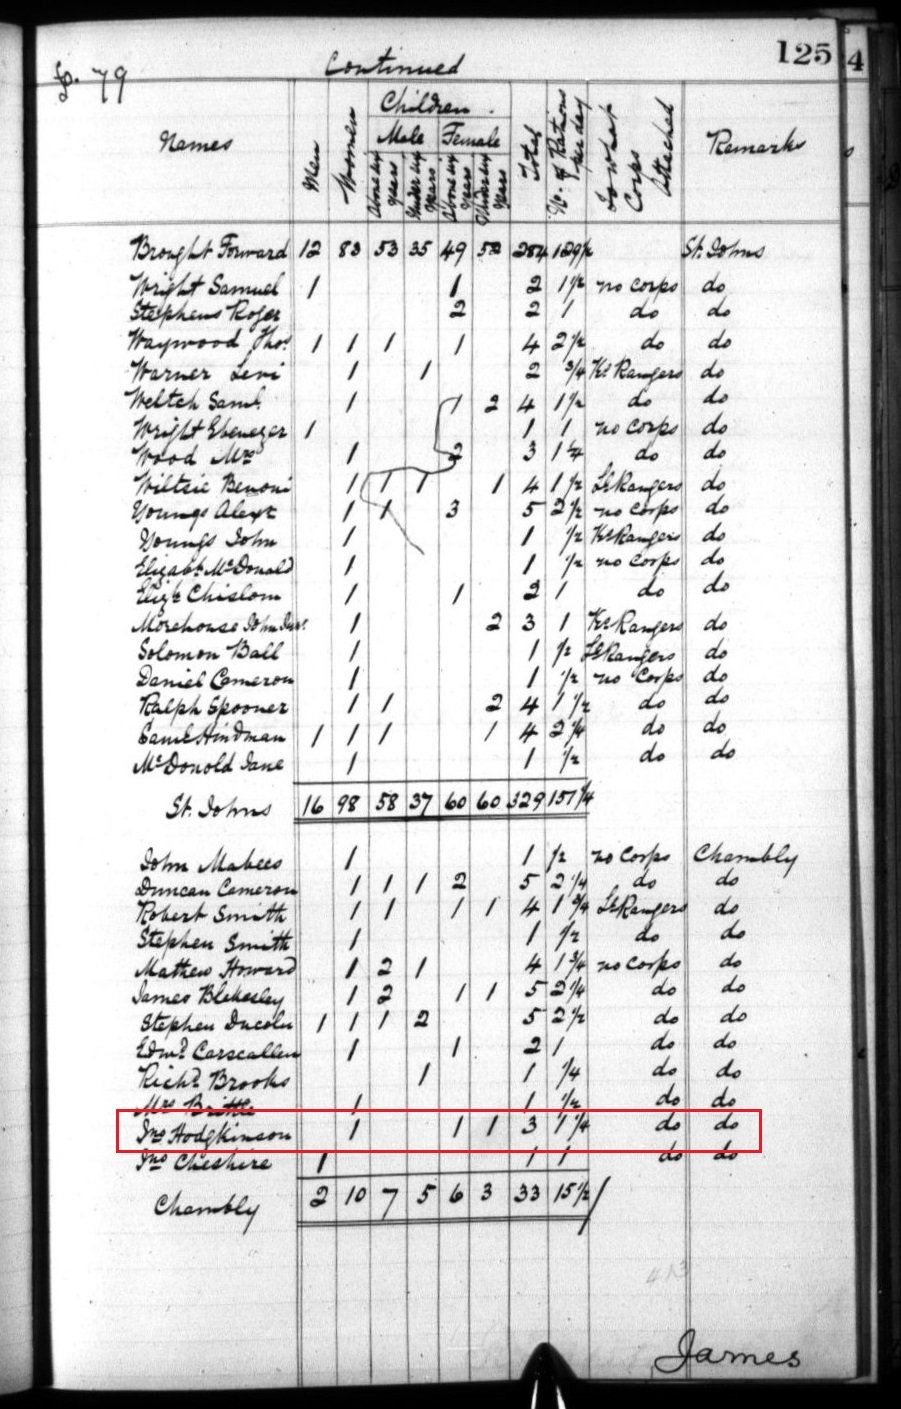 p. 79 Continued 125 4
Children
Names Men Women Male Female Total No. of Rations per day To what Corps Attached Remarks
Above six years Under six years Above six years Under six years
Brought Forward 12 83 53 35 49 52 284 129½ St. Johns
Wright Samuel 1 1 2 1½ no corps do
Stephens Roger 2 2 1 do do
Waywood Thos. 1 1 1 1 4 2½ do do
Warner Levi 1 1 2 ¾ Ks Rangers do
Weltch Saml. 1 1 2 4 1½ do do
Wright Ebenezer 1 1 1 no corps do
Wood Mrs 1 2 3 1¼ do do
Wiltsie Benoni 1 1 1 1 4 1½ Ls Rangers do
Youngs Alexr 1 1 3 5 2½ no corps do
Youngs John 1 1 ½ Ks Rangers do
Elizabt. McDonald 1 1 ½ no corps do
Elizt. Chislom 1 1 2 1 do do
Morehouse John Junr. 1 2 3 1 Ks Rangers do
Solomon Ball 1 1 ½ Ls Rangers do
Daniel Cameron 1 1 ½ no Corps do
Ralph Spooner 1 1 2 4 1½ do do
Saml Hindman 1 1 1 1 4 2¼ do do
McDonold Jane 1 1 ½ do do
St. Johns 16 98 58 37 60 60 329 151¼
John Mabees 1 1 ½ no Corps Chambly
Duncan Cameron 1 1 1 2 5 2¼ do do
Robert Smith 1 1 1 1 4 1¾ Ls Rangers do
Stephen Smith 1 1 ½ do do
Mathew Howard 1 2 1 4 1¾ no corps do
James Blekesley 1 2 1 1 5 2¼ do do
Stephen Ducolu 1 1 1 2 5 2½ do do
Edwd. Carscallen 1 1 2 1 do do
Richd. Brooks 1 1 ¼ do do
Mrs Brittle 1 1 ½ do do
Jno Hodgkinson 1 1 1 3 1¼ do do
Jno Cheshire 1 1 1 do do
Chambly 2 10 7 5 6 3 33 15½
James